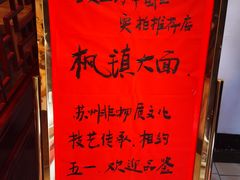 实拍推荐店
枫镇大面
苏州非物质文化
技艺传承.相约
五一 欢迎品鉴